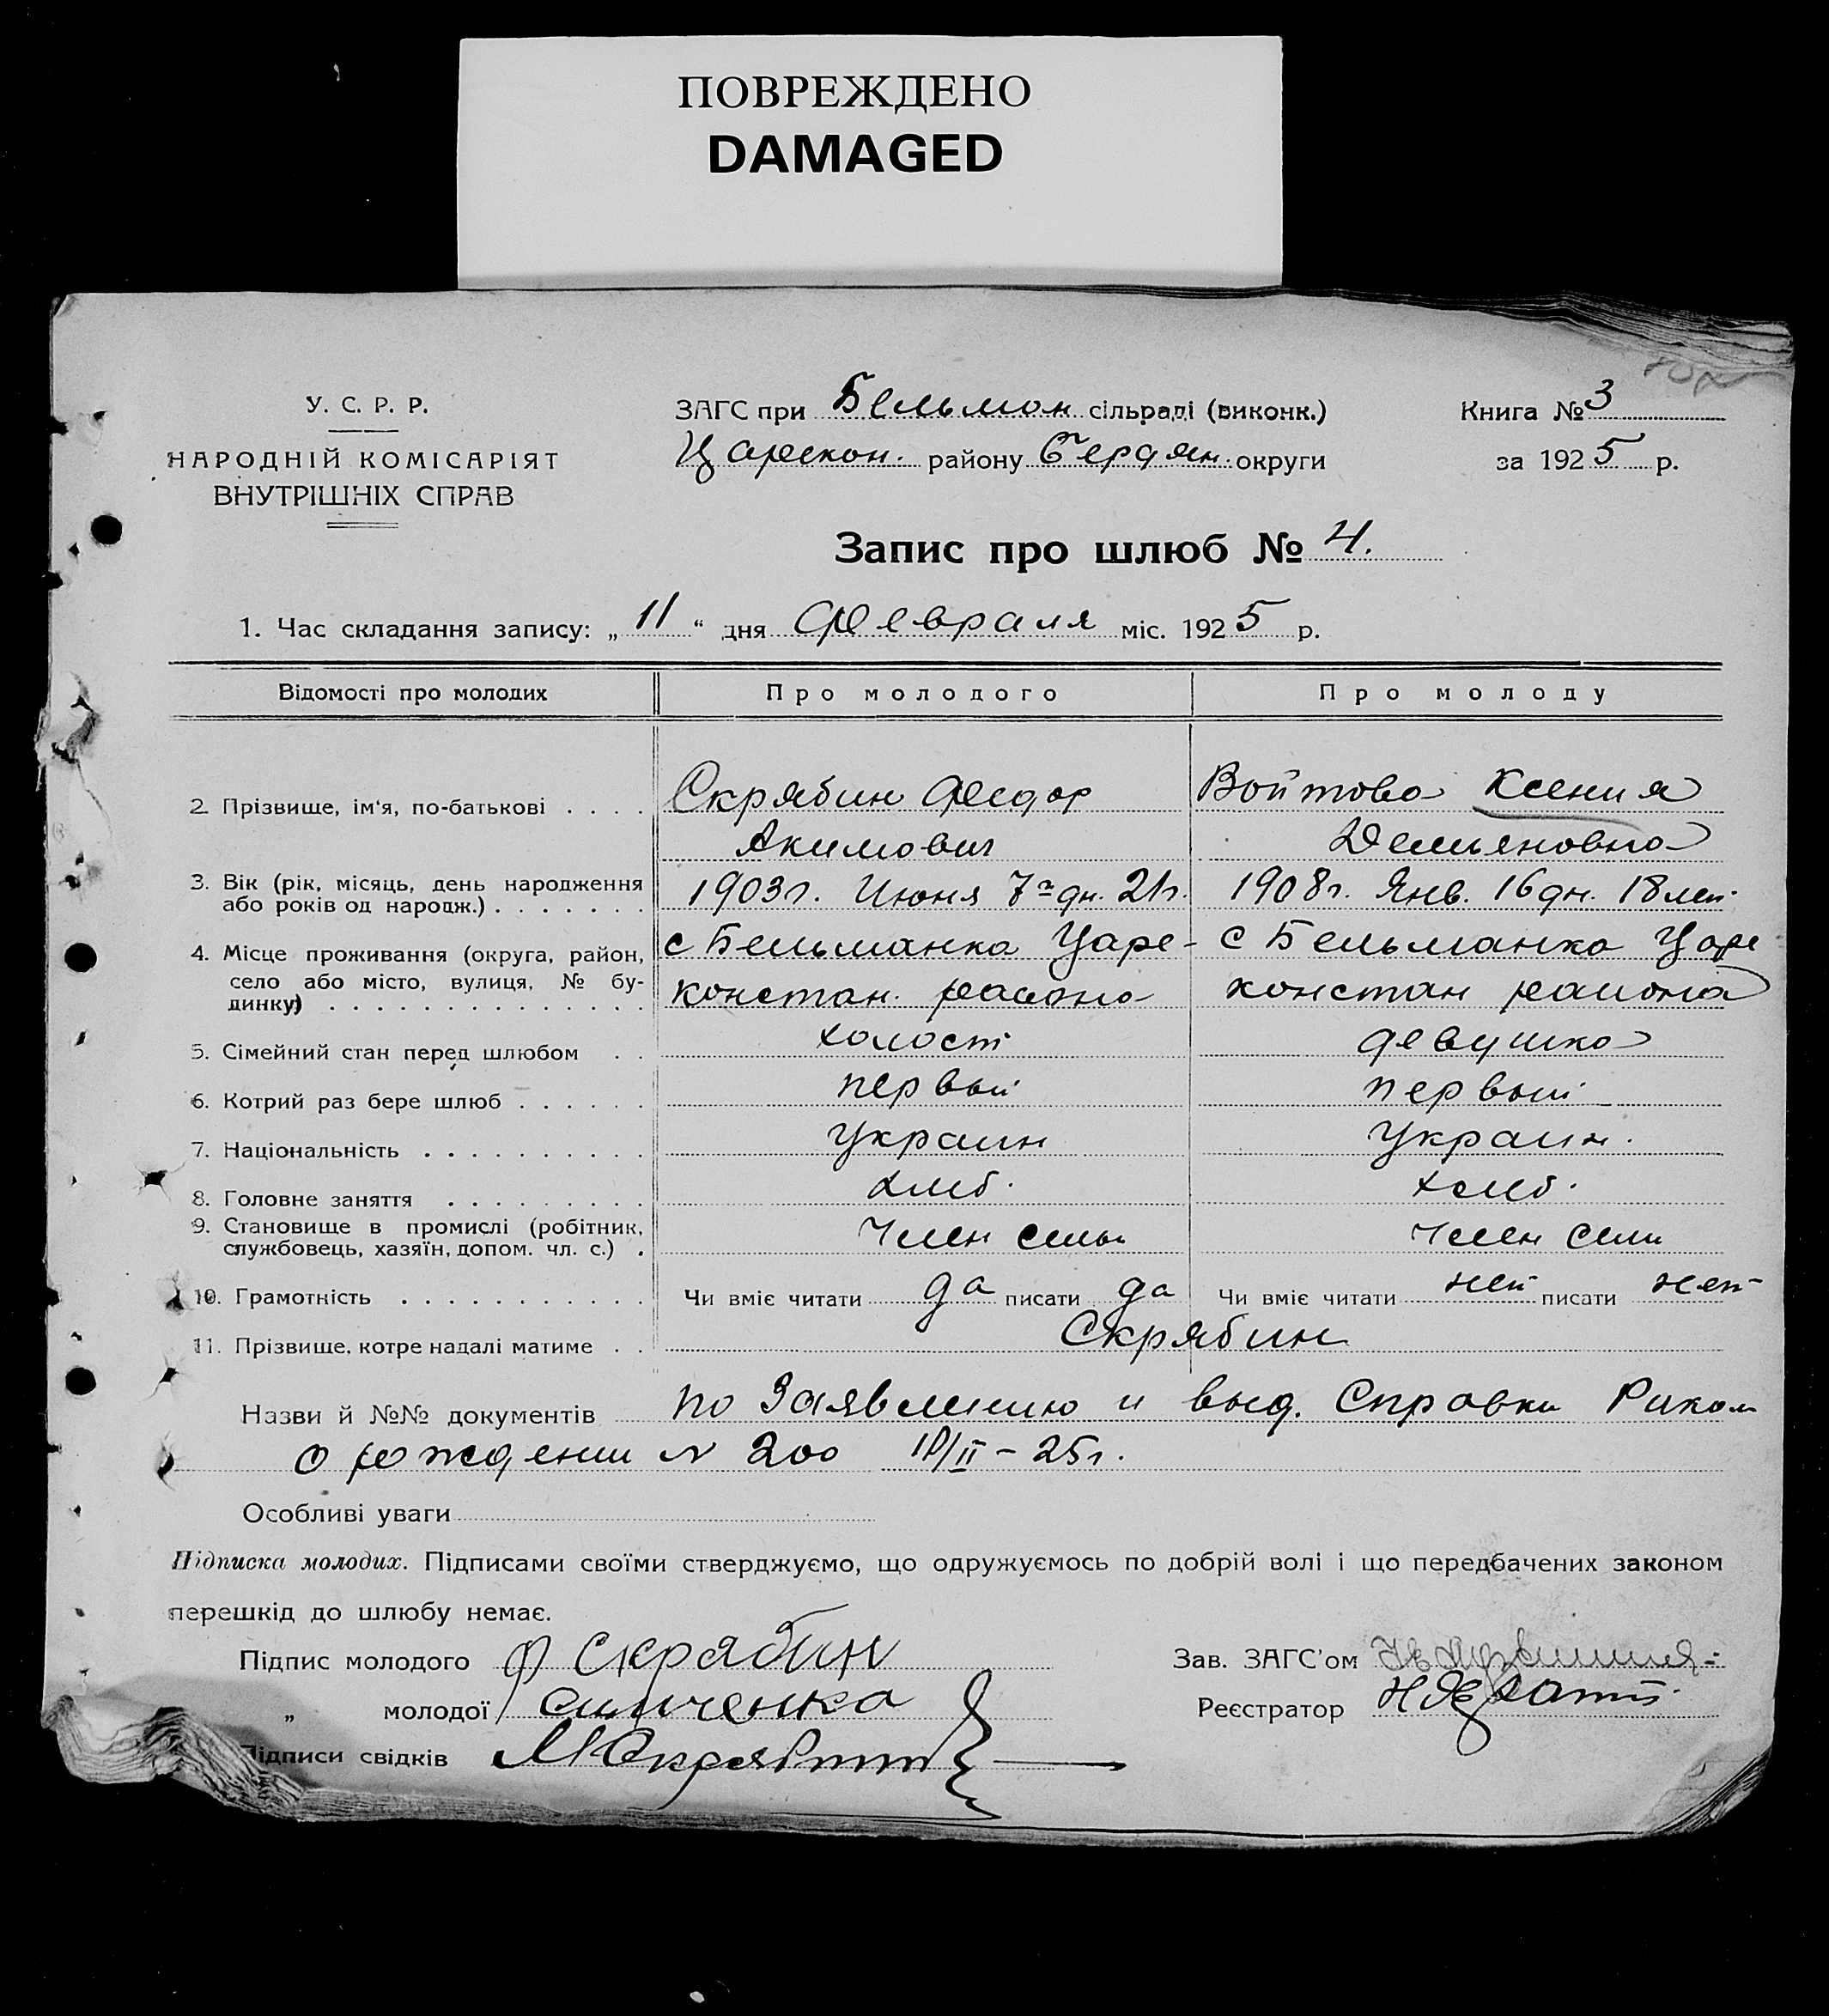 ПОВРЕЖДЕНО
DAMAGED
У. С. Р. Р.
НАРОДНІЙ КОМІСАРІЯТ
ВНУТРІШНІХ СПРАВ
ЗАГС при Бельман сільраді (виконк.)
Царекон. району Бердян. округи
Книга № 3
за 1925 р.
Запис про шлюб № 4.
1. Час складання запису: „ 11 “ дня Февраля міс. 1925 р.
Відомості про молодих Про молодого Про молоду
2. Прізвище, ім'я, по-батькові . . . . Скрябин Федор Войтова Ксения
Акимович Демьяновна
3. Вік (рік, місяць, день народження 1903г. Июня 7го дн. 21г. 1908г. Янв. 16 дн. 18 лет
або років од народж.) . . . . . . .
4. Місце проживання (округа, район, с Бельманка Царе- с Бельманка Царе
село або місто, вулиця, № бу- констан. района констан района
динку) . . . . . . . . . . . . . .
5. Сімейний стан перед шлюбом . . холост девушка
6. Котрий раз бере шлюб . . . . . . первый первый
7. Національність . . . . . . . . . . Украин Украин.
8. Головне заняття . . . . . . . . . хлеб. хлеб.
9. Становище в промислі (робітник, Член семьи Член семи
службовець, хазяїн, допом. чл. с.) .
10. Грамотність . . . . . . . . . . . Чи вміє читати да писати да Чи вміє читати нет писати нет
11. Прізвище, котре надалі матиме . . Скрябин
Назви й №№ документів по Заявлению и выд. Справки Риком
о рождении N 200 10/II – 25г.
Особливі уваги
Підписка молодих. Підписами своїми стверджуємо, що одружуємось по добрій волі і що передбачених законом
перешкід до шлюбу немає.
Підпис молодого Ф Скрябин
Зав. ЗАГС'ом
„ молодої
Реєстратор
Підписи свідків М Скрябин